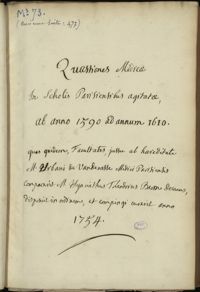 Ms 73.
Quæstiones Medicæ
In Scholis Parisiensibus agitatæ,
ab anno 1590 ad annum 1610.
quas quidem, Facultatis, jussu
M. Urbani de Vandenesse Medici Parisiensis
M. Hyacinthus Theodorus Baron Decanus,
disponi in ordinem, et compingi curavit anno
1754.